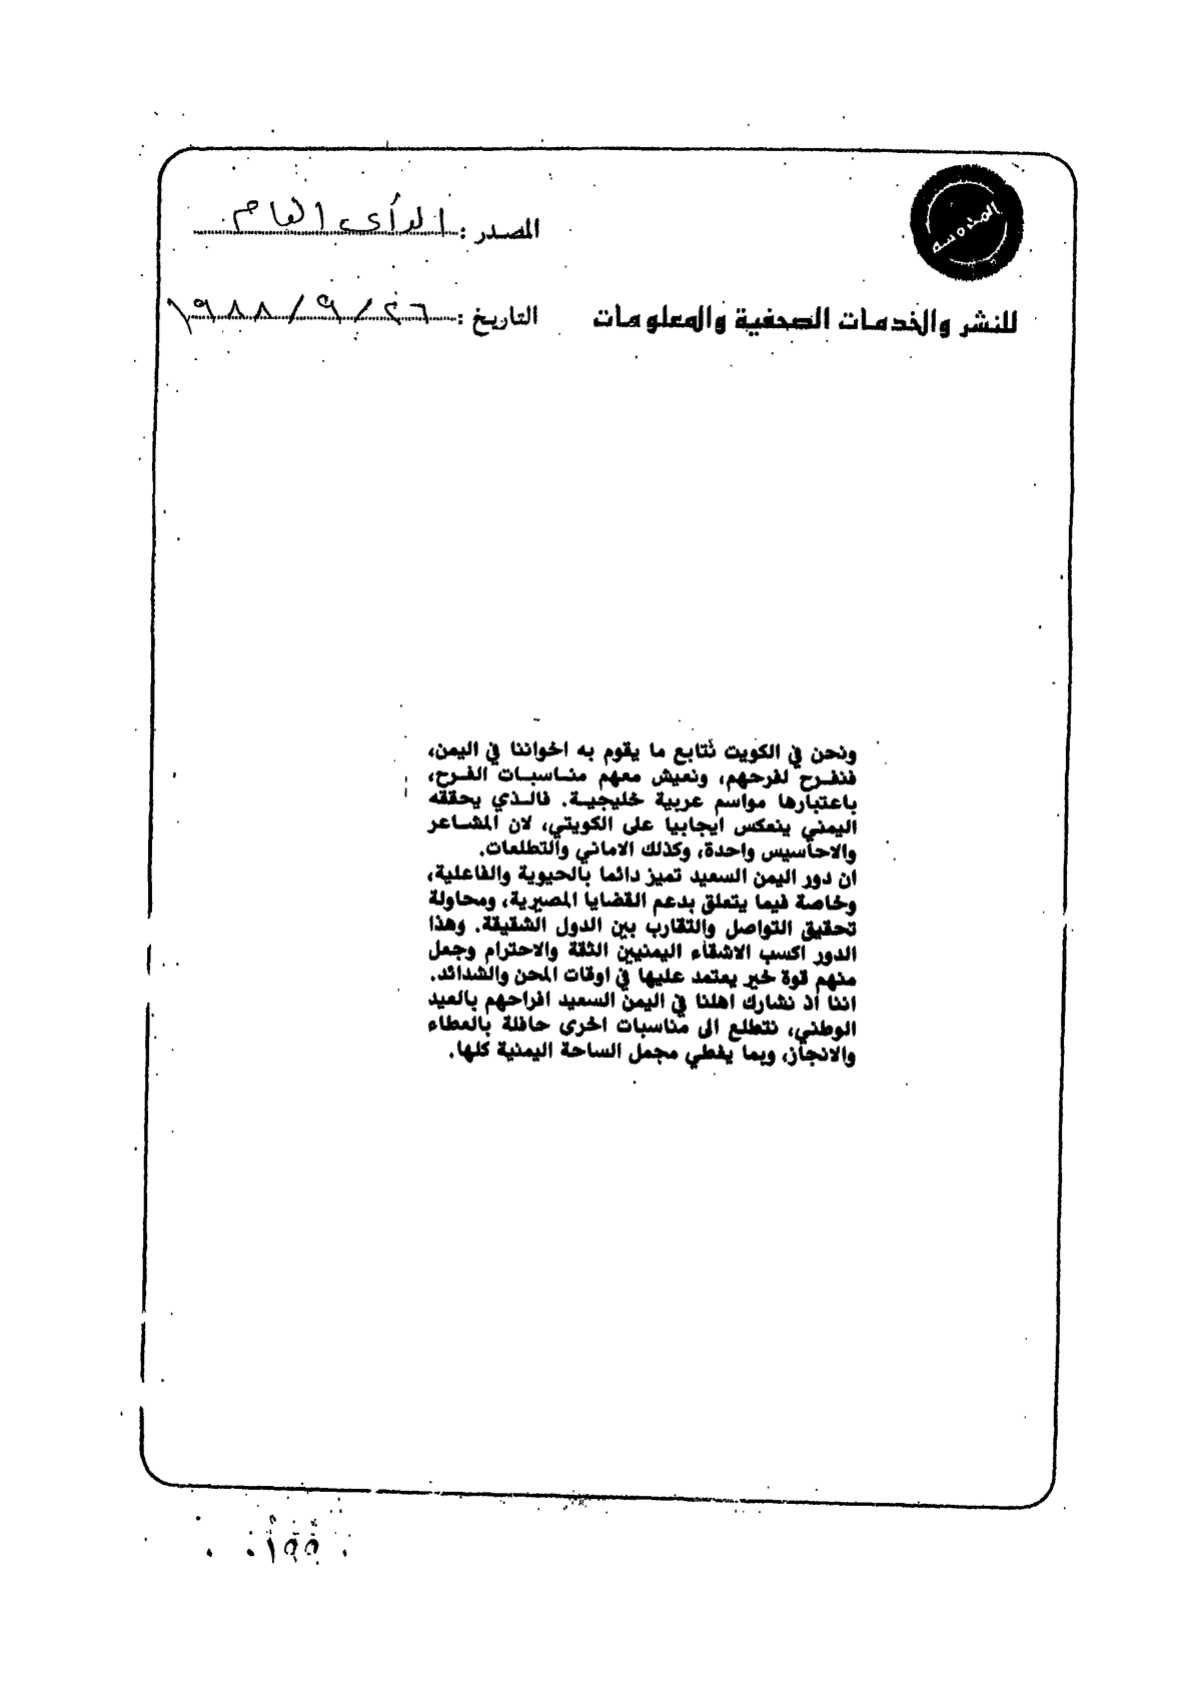 المصدر : الرأى العام
للنشر والخدمات الصحفية والمعلومات
التاريخ : ٢٦ / ٩ / ١٩٨٨
ونحن في الكويت نتابع ما يقوم به اخواننا في اليمن،
فنفرح لفرحهم، ونعيش معهم مناسبات الفرح،
باعتبارها مواسم عربية خليجية. فالذي يحققه
اليمني ينعكس ايجابيا على الكويتي، لان المشاعر
والاحاسيس واحدة، وكذلك الاماني والتطلعات.
ان دور اليمن السعيد تميز دائما بالحيوية والفاعلية،
وخاصة فيما يتعلق بدعم القضايا المصيرية، ومحاولة
تحقيق التواصل والتقارب بين الدول الشقيقة. وهذا
الدور اكسب الاشقاء اليمنيين الثقة والاحترام وجعل
منهم قوة خير يعتمد عليها في اوقات المحن والشدائد.
اننا اذ نشارك اهلنا في اليمن السعيد افراحهم بالعيد
الوطني، نتطلع الى مناسبات اخرى حافلة بالعطاء
والانجاز، وبما يغطي مجمل الساحة اليمنية كلها.